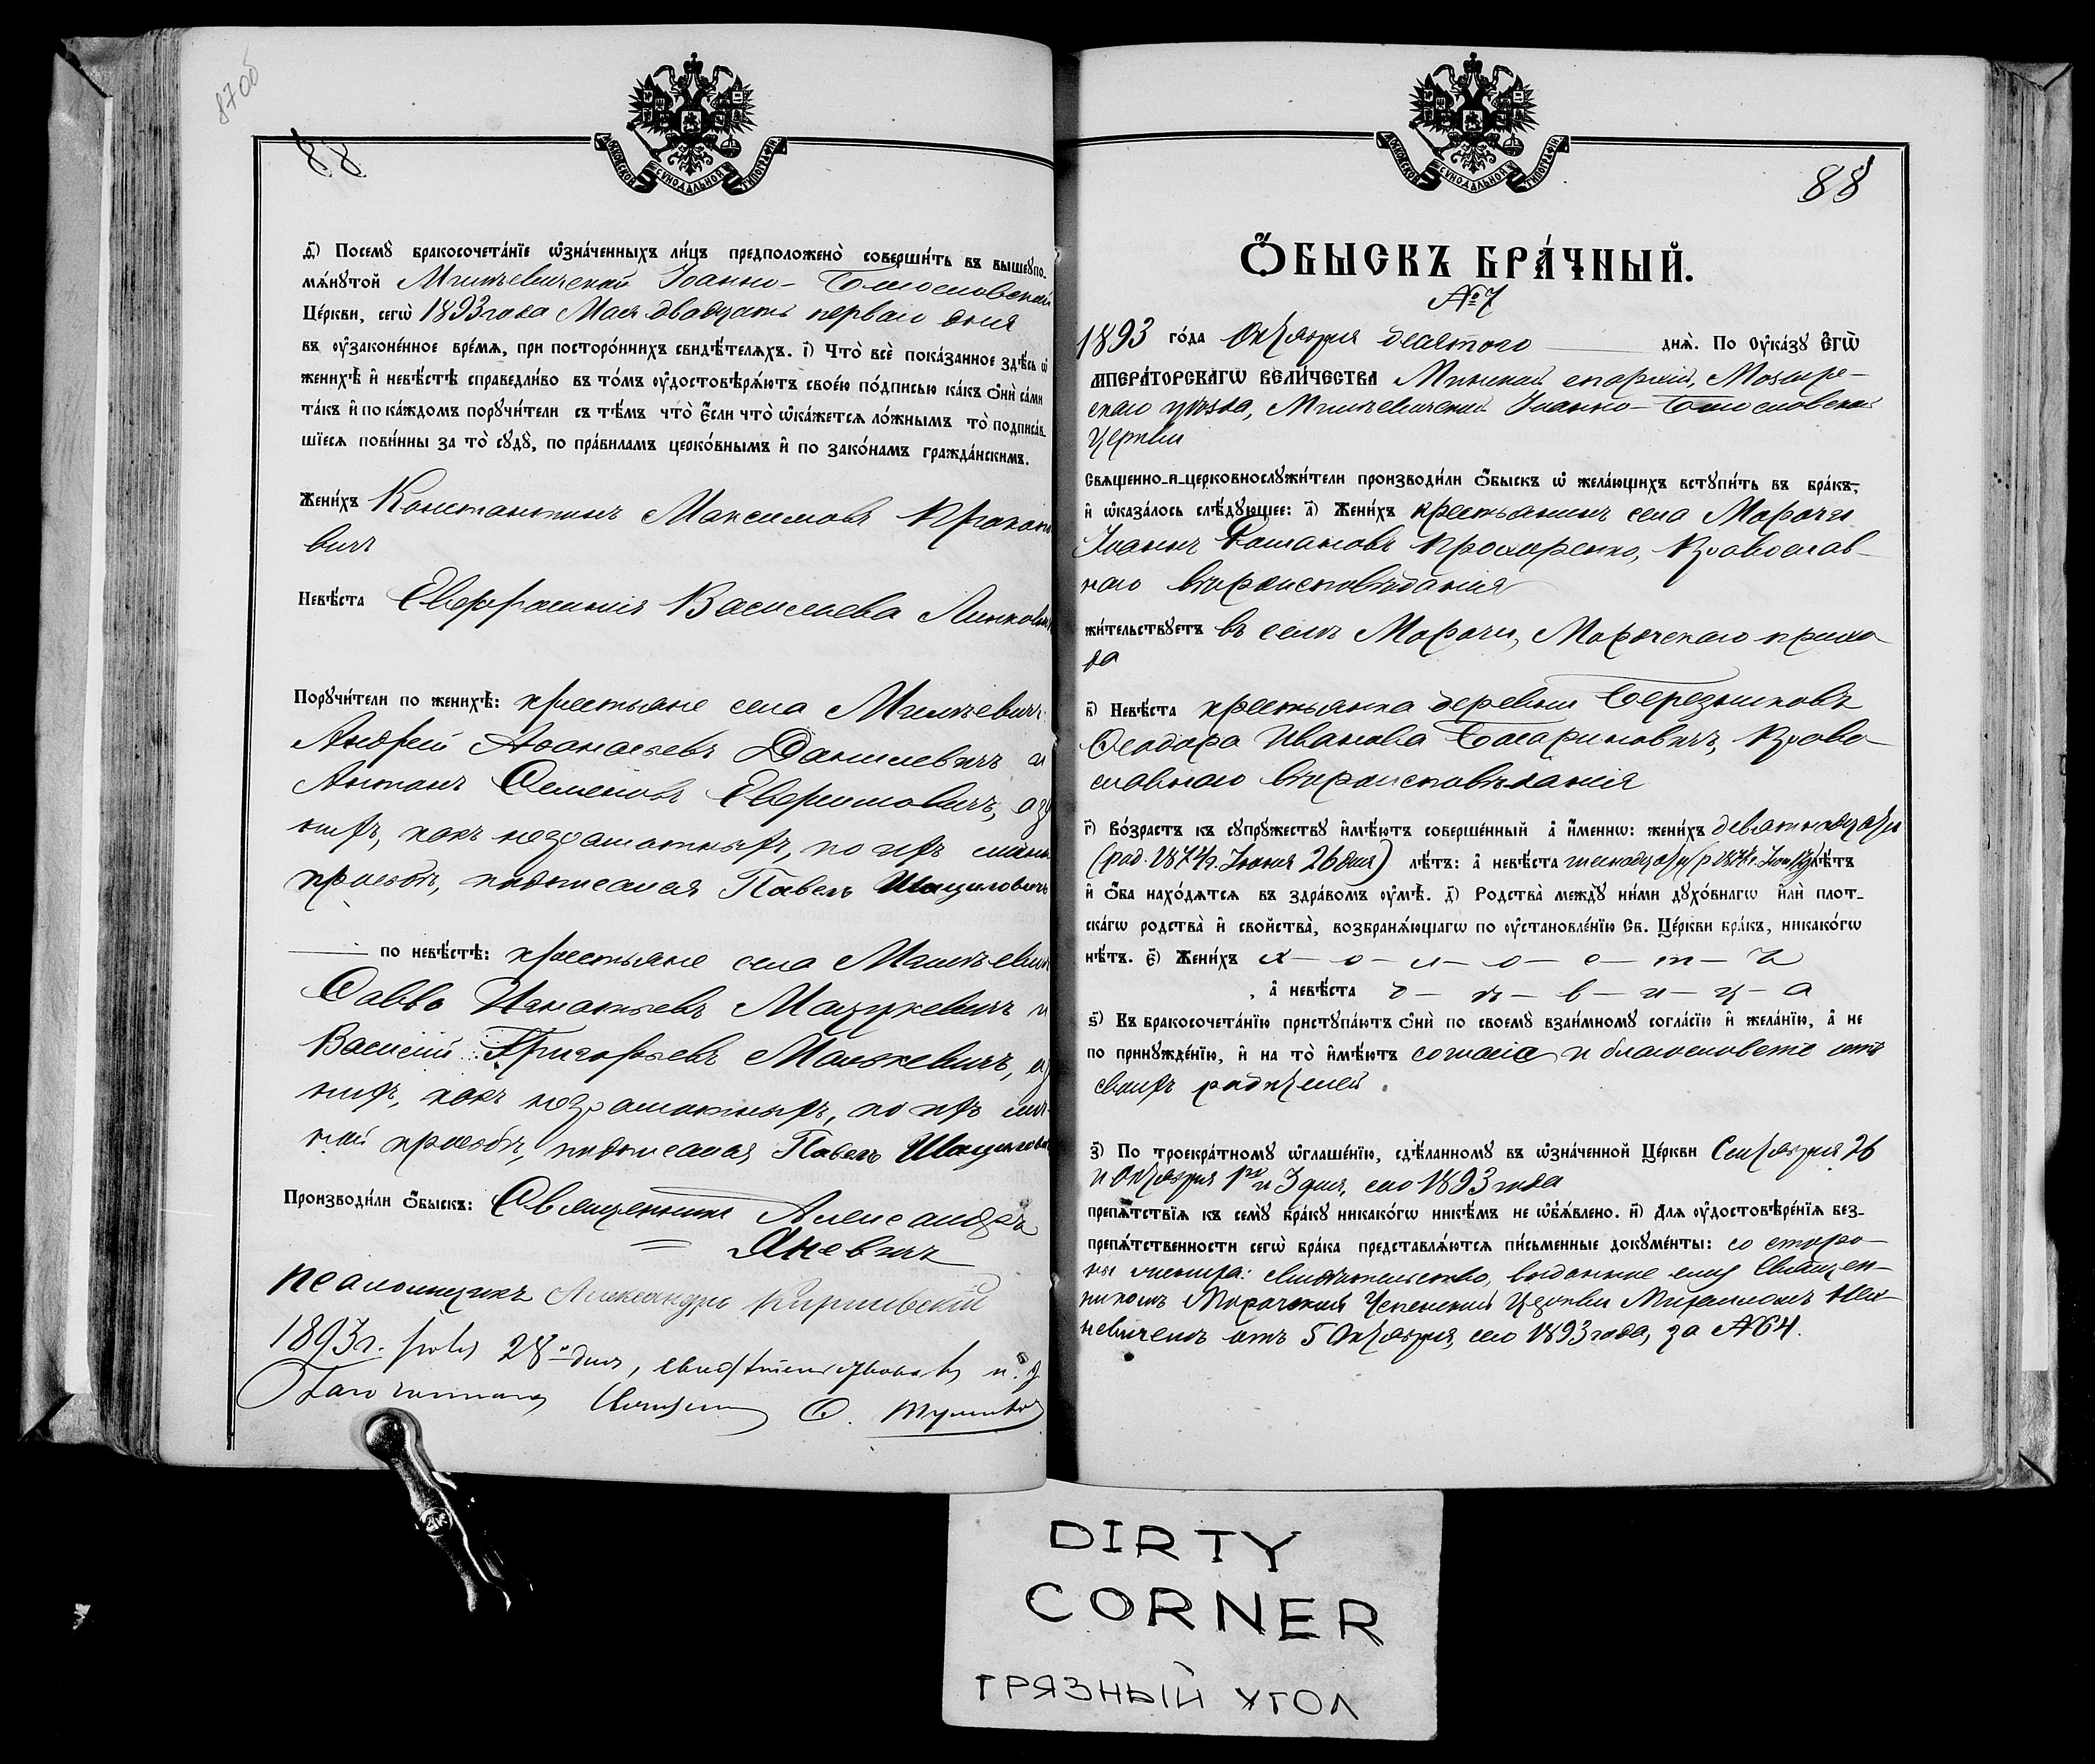 87об
88
МОСКОВСКОЙ СѴНОДАЛЬНОЙ ТѴПОГРАФІИ
д҃) Посемꙋ бракосочета́нїе ѡ҆зна́ченныхъ ли́цъ предположено̀ соверши́ть въ вышеꙋпо-
мѧ́нꙋтой Мильчевичской Іоанно-Богословской
Це́ркви, сегѡ̀ 1893 года Мая двадцать перваго дня
въ ᲂу҆законе́нное вре́мѧ, при посторо́ннихъ свидѣ́телѧхъ. і҃) Что̀ всѐ пока́занное здѣ́сь ѡ҆
женихѣ̀ и҆ невѣ́стѣ справедли́во въ то́мъ ᲂу҆достовѣрѧ́ютъ свое́ю по́дписью ка́къ ѻ҆нѝ са́ми
та́къ и҆ по ка́ждомъ порꙋчи́тели съ тѣ́мъ что̀ є҆́сли что̀ ѡ҆ка́жетсѧ ло́жнымъ то̀ подписа́в-
шїесѧ пови́нны за то̀ сꙋдꙋ̀, по пра́виламъ церко́внымъ и҆ по зако́намъ гражда́нскимъ.
Жени́хъ Константинъ Максимовъ Прокопо-
вичъ
Невѣ́ста Евфросинія Васильева
Порꙋчи́тели по женихѣ̀: крестьяне села Мильчевичъ
Андрей Аѳанасьевъ Данилевичъ и
Антонъ Семеновъ а за
нихъ, какъ неграмотныхъ, по ихъ
просьбѣ, подписался Павелъ Шацилович
по невѣ́стѣ: крестьяне села Мильчевичъ
Савва Игнатьевъ Мацукевичъ и
Василій Григорьевъ Манькевичъ, а за
нихъ, какъ неграмотныхъ, по ихъ лич-
ной просьбѣ, подписался Павелъ Шацилович
Производи́ли ѻ҆́быскъ: Священникъ Александръ
Яневичъ
Псаломщикъ Александръ
1893 г. 28го дня, свидѣтельствовалъ и. д.
Благочиннаго Священникъ
88
МОСКОВСКОЙ СѴНОДАЛЬНОЙ ТѴПОГРАФІИ
Ѻ҆́БЫСКЪ БРА́ЧНЫЙ.
№ 7
1893 го́да Октября десятаго днѧ̀. По ᲂу҆ка́зꙋ Е҆гѡ̀
мпера́торскагѡ вели́чества Минской епархіи, Мозырс-
скаго уѣзда, Мильчевичской Іоанно-Богословской
Церкви
Свѧщенно-и-церковнослꙋжи́тели производи́ли ѻ҆́быскъ ѡ҆ жела́ющихъ встꙋпи́ть въ бра́къ,
и҆ ѡ҆каза́лось слѣ́дꙋющее: а҃) Жени́хъ крестьянинъ села Морочи
Іоаннъ Романовъ Прохоренко, Православ-
наго вѣроисповѣданія
жи́тельствꙋетъ въ селѣ Морочи, Морочскаго прихо-
да
в҃) Невѣ́ста крестьянка деревни Березниковъ
Ѳеодора Иванова Багариновичъ, Право-
славнаго вѣроисповѣданія
г҃) Во́зрастъ къ сꙋпрꙋ́жествꙋ и҆мѣ́ютъ соверше́нный а҆ и҆́менно: жени́хъ девятнадцать
(род. 1874 г. Іюня 26 дня) лѣ́тъ: а҆ невѣ́ста лѣ́тъ
и҆ ѻ҆́ба нахо́дѧтсѧ въ здра́вомъ ᲂу҆мѣ̀. д҃) Родства̀ междꙋ̀ ни́ми дꙋхо́внагѡ и҆лѝ плот-
ска́гѡ родства̀ и҆ свойства̀, возбранѧ́ющагѡ по ᲂу҆становле́нїю Св. Це́ркви бра́къ, никако́гѡ
нѣ́тъ. є҃) Жени́хъ х — о — л — о — с — т — ъ
, а҆ невѣ́ста д — ѣ — в — и — ц — а
ѕ҃) Къ бракосочета́нїю пристꙋпа́ютъ ѻ҆нѝ по своемꙋ̀ взаи́мномꙋ согла́сїю и҆ жела́нїю, а҆ не
по принꙋжде́нїю, и҆ на то̀ и҆мѣ́ютъ согласіе и благословеніе отъ
своихъ родителей.
з҃) По троекра́тномꙋ ѡ҆глаше́нїю, сдѣ́ланномꙋ въ ѡ҆зна́ченной Це́ркви Сентября 26
и Октября 1го и 3 дня, сего 1893 года
препѧ́тствїѧ къ семꙋ̀ бра́кꙋ никако́гѡ никѣ́мъ не ѡ҆б̾ѧ́влено. и҃) Длѧ ᲂу҆достовѣре́нїѧ без-
препѧ́тственности сегѡ̀ бра́ка представлѧ́ютсѧ пи́сьменные докꙋме́нты: со сторо-
ны жениха: свидѣтельство, выданное ему Священ-
никомъ Морочской Успенской Церкви Михаиломъ
невичемъ отъ 5 Октября, сего 1893 года, за № 64.
DIRTY
CORNER
ГРЯЗНЫЙ УГОЛ